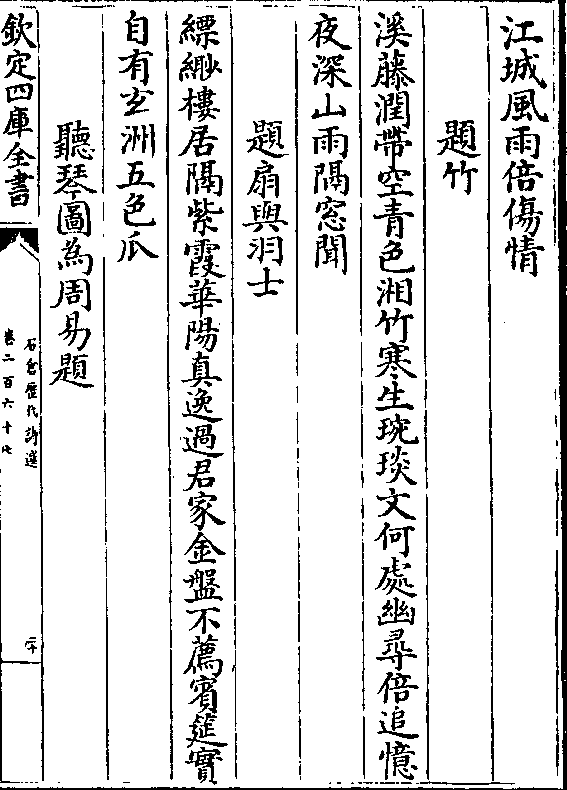 江城風雨倍傷情
題竹
溪藤潤帶空青色湘竹寒生琬琰文何處幽尋倍追憶
夜深山雨隔窓聞
題扇與羽士
縹緲樓居隔紫霞華陽真逸過君家金盤不薦賓筵實
自有玄洲五色瓜
聽琴圖為周易題
欽定四庫全書
石倉歷代詩選
卷二百六十七